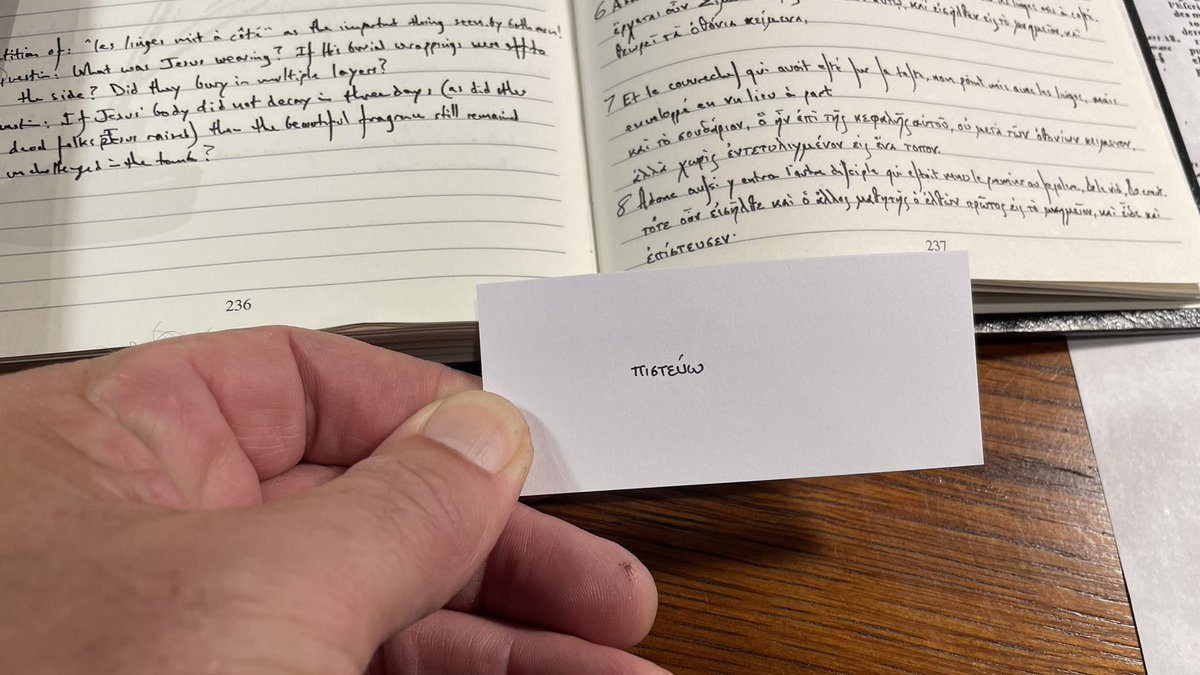 tition of: "les linges mit à côté" as the important thing seen by both men!
question: What was Jesus wearing? If His burial wrappings were off to
the side? Did they bury in multiple layers?
If Jesus' body did not decay in three days (as did the
dead folks Jesus raised) then the beautiful fragrance still remained
unchallenged in the tomb?
236
6
ἔρχεται οὖν Σίμων καὶ εἰσῆλθεν εἰς τὸ μνημεῖον, καὶ
θεωρεῖ τὰ ὀθόνια κείμενα,
7 Et le couvrechef qui avoit esté sur sa teste, non point mis avec les linges, mais
enveloppé en un lieu à part
καὶ τὸ σουδάριον, ὃ ἦν ἐπὶ τῆς κεφαλῆς αὐτοῦ, οὐ μετὰ τῶν ὀθονίων κείμενον,
ἀλλὰ χωρὶς ἐντετυλιγμένον εἰς ἕνα τοπον.
8 Adonc aussi y entra l'autre disciple qui estoit venu le premier au sepulcre, & le vid, & creut.
τότε οὖν εἰσῆλθε καὶ ὁ ἄλλος μαθητὴς ὁ ἐλθὼν πρῶτος εἰς τὸ μνημεῖον, καὶ εἶδε καὶ
ἐπίστευσεν.
237
πιστεύω